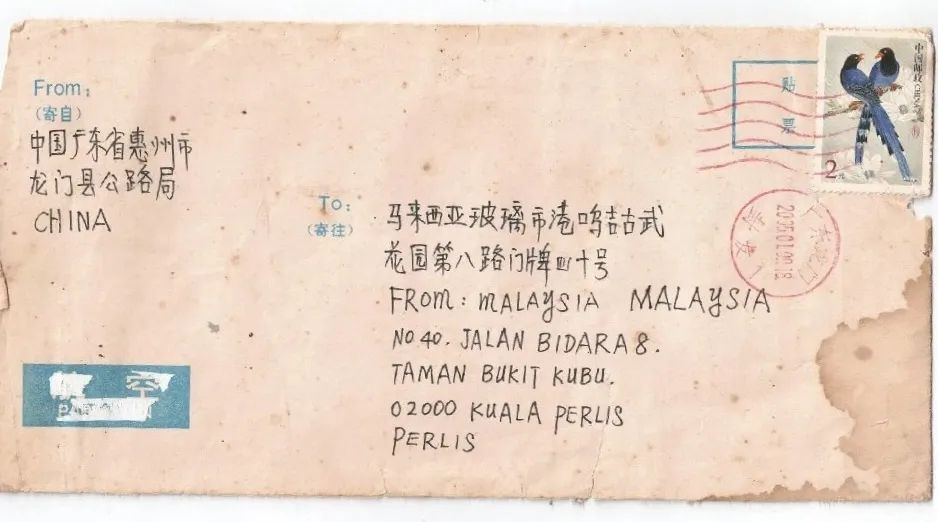 From:
(寄自)
中国广东省惠州市
龙门县公路局
CHINA
To:
(寄往)
马来西亚玻璃市港呜吉古武
花园第八路门牌四十号
FROM: MALAYSIA MALAYSIA
NO 40. JALAN BIDARA 8.
TAMAN BUKIT KUBU.
02000 KUALA PERLIS
PERLIS
贴
票
中国邮政
CHINA
2元
广东龙门
空